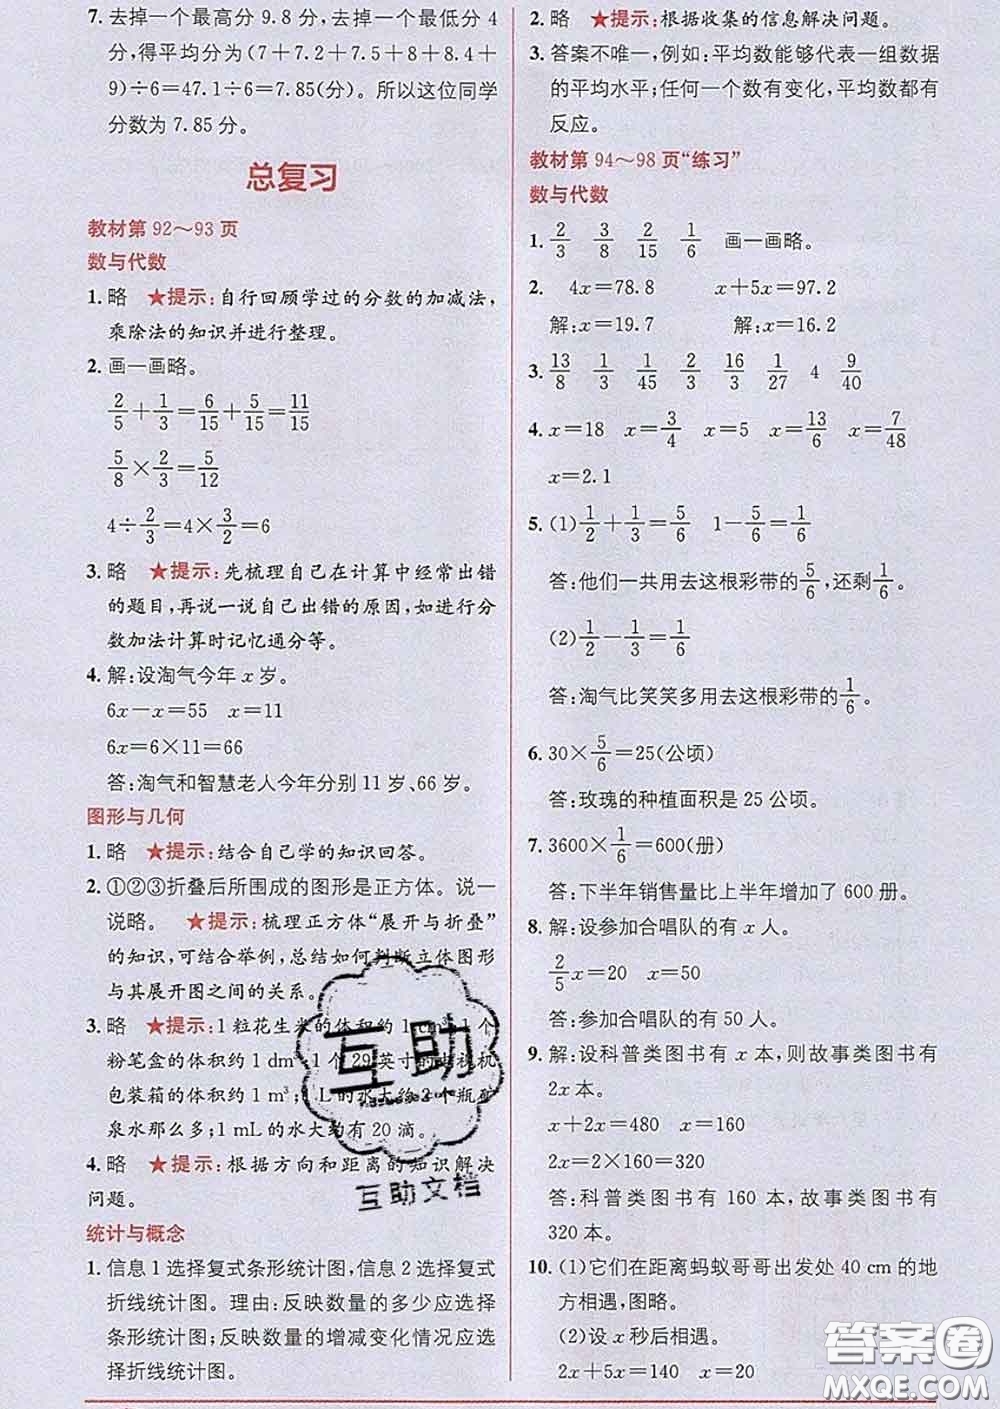 7. 去掉一个最高分 9.8 分,去掉一个最低分 4
分,得平均分为(7+7.2+7.5+7.8+8.6+
9)÷6=47.1÷6=7.85(分)。所以这位同学
分数为 7.85 分。
总复习
教材第 92～93 页
数与代数
1. 略 ★提示:自行回顾学过的分数的加减法,
乘除法的知识并进行整理。
2. 画一画略。
2/5+1/3=6/15+5/15=11/15
5/8×2/3=5/12
4÷2/3=4×3/2=6
3. 略 ★提示:先梳理自己在计算中经常出错
的题目,再说一说自己出错的原因,如进行分
数加法计算时记忆通分等。
4. 解:设淘气今年 x 岁。
6x-x=55 x=11
6x=6×11=66
答:淘气和智慧老人今年分别 11 岁、66 岁。
图形与几何
1. 略 ★提示:结合自己学的知识回答。
2. ①②③折叠后所围成的图形是正方体。说一
说略。 ★提示:梳理正方体“展开与折叠”
的知识,可结合举例,总结如何判断立体图形
与其展开图之间的关系。
3. 略 ★提示:1 粒花生米的体积约 1 cm³ 1 个
粉笔盒的体积约 1 dm³ 1 个 29 英寸的电视机
包装箱的体积约 1 m³; L的水大约 2 个瓶矿
泉水那么多;1 mL的水大约有 20 滴。
4. 略 ★提示:根据方向和距离的知识解决
问题。
统计与概念
1. 信息 1 选择复式条形统计图,信息 2 选择复式
折线统计图。理由:反映数量的多少应选择
条形统计图;反映数量的增减变化情况应选
择折线统计图。
2. 略 ★提示:根据收集的信息解决问题。
3. 答案不唯一,例如:平均数能够代表一组数据
的平均水平;任何一个数有变化,平均数都有
反应。
教材第 94～98 页“练习”
数与代数
1. 2/3 3/8 2/15 1/6 画一画略。
2. 4x=78.8 x+5x=97.2
解:x=19.7 解:x=16.2
3. 13/8 1/3 1/45 2/3 16/3 1/27 4 9/40
4. x=18 x=3/4 x=5 x=13/6 x=7/48
x=2.1
5. (1)1/2+1/3=5/6 1-5/6=1/6
答:他们一共用去这根彩带的5/6,还剩1/6。
(2)1/2-1/3=1/6
答:淘气比笑笑多用去这根彩带的1/6。
6. 30×5/6=25(公顷)
答:玫瑰的种植面积是 25 公顷。
7. 3600×1/6=600(册)
答:下半年销售量比上半年增加了 600 册。
8. 解:设参加合唱队的有 x 人。
2/5x=20 x=50
答:参加合唱队的有 50 人。
9. 解:设科普类图书有 x 本,则故事类图书有
2x 本。
x+2x=480 x=160
2x=2×160=320
答:科普类图书有 160 本,故事类图书有
320 本。
10. (1)它们在距离蚂蚁哥哥出发处 40 cm 的地
方相遇,图略。
(2)设 x 秒后相遇。
2x+5x=140 x=20
互助
互助文档
答案圈
MXQE.COM